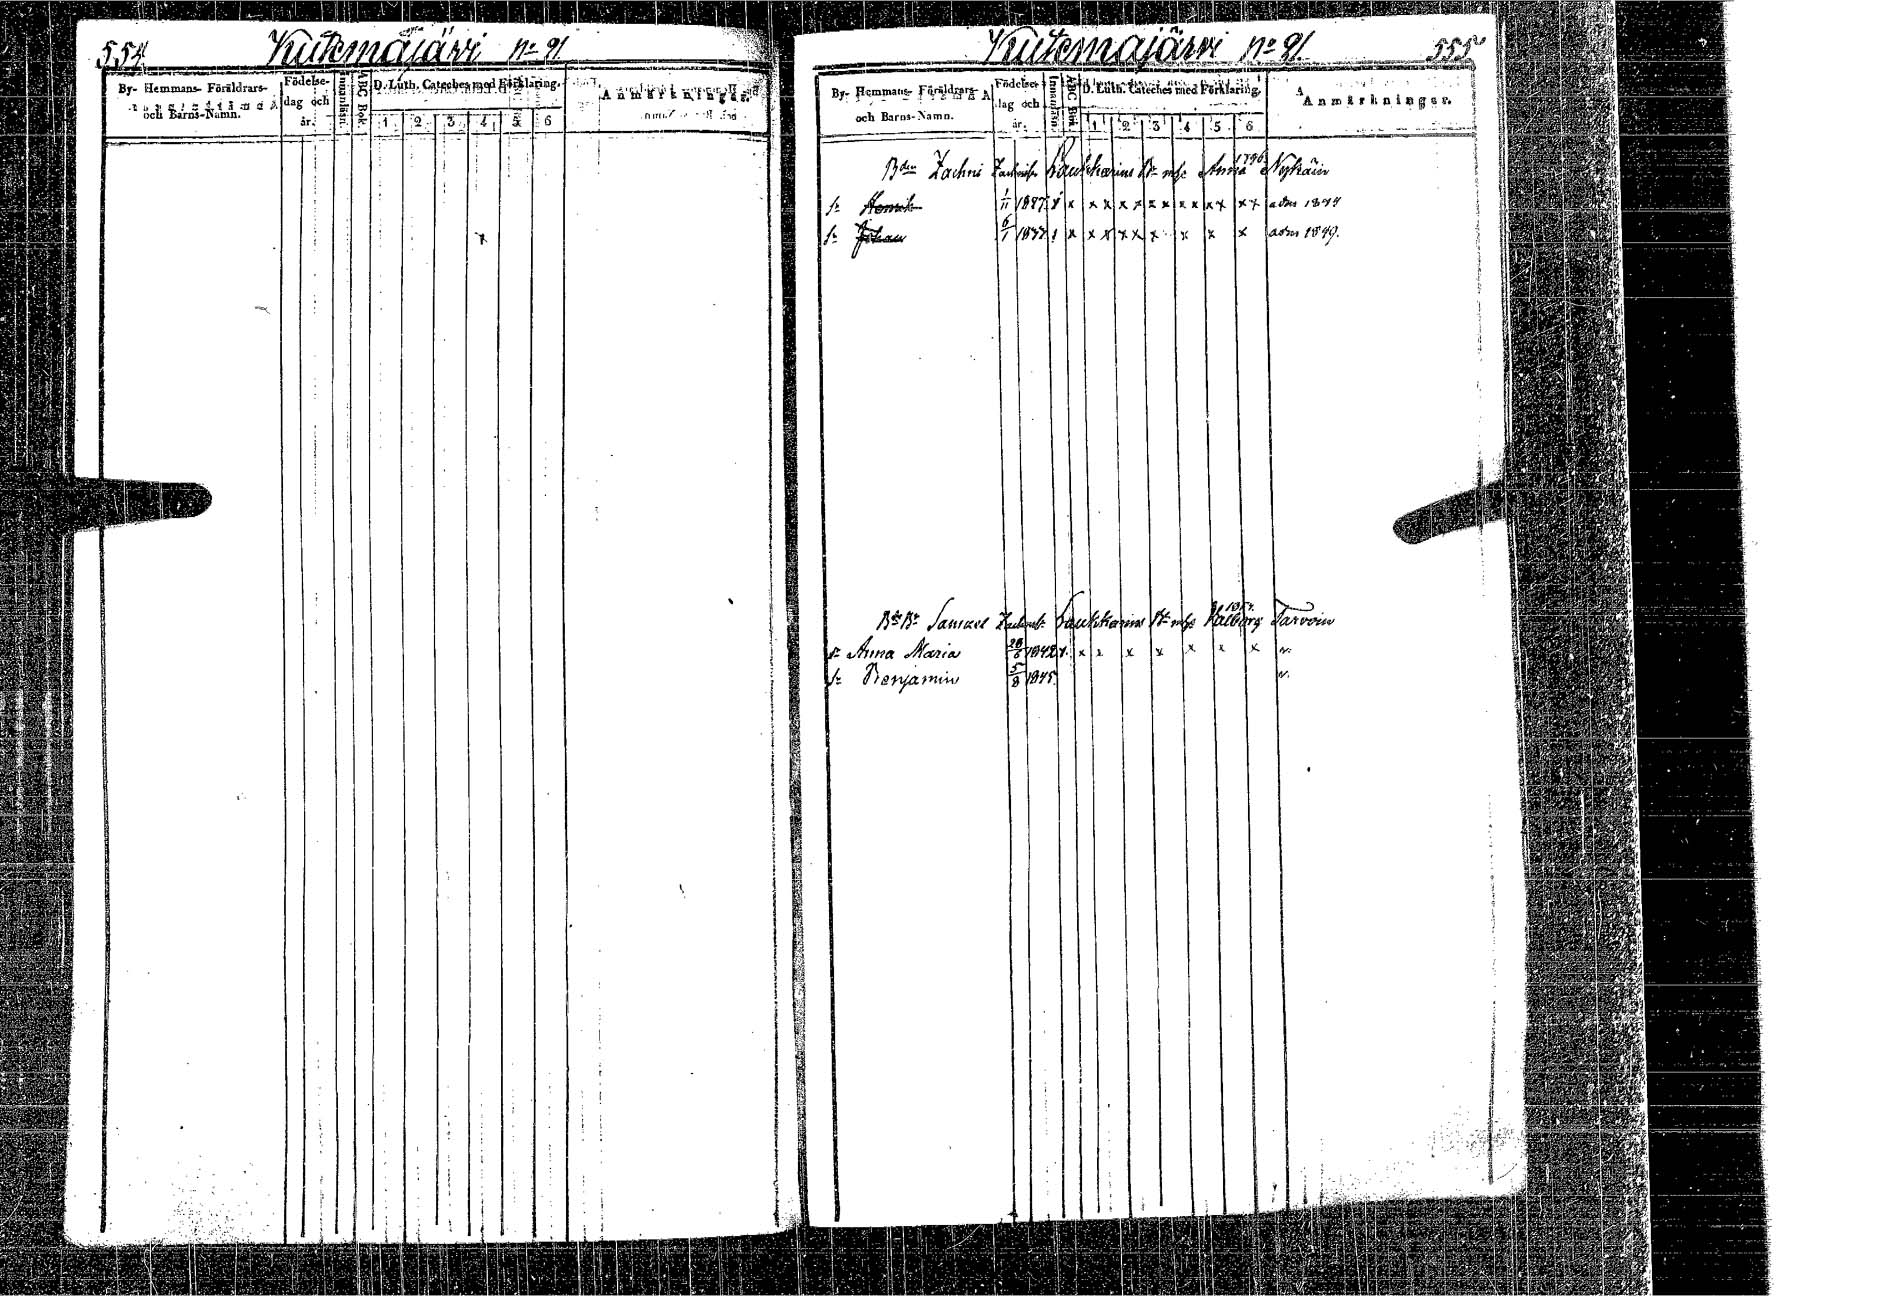 554. Kutemajärvi N:o 91
By- Hemmans- Föräldrars-
och Barns-Namn.
Födelse-
dag och
år.
Innanläsn.
ABC Bok.
D. Luth. Cateches med Förklaring.
1 2 3 4 5 6
Anmärkningar.
x
Kutemajärvi N:o 91. 555
By- Hemmans- Föräldrars-
och Barns-Namn.
Födelse-
dag och
år.
Innanläsn.
ABC Bok.
D. Luth. Cateches med Förklaring.
1 2 3 4 5 6
Anmärkningar.
1796
Bden Zachris Laukkarins Anna Nykäin
Sn Henrik 1/11 1827 x x x x x x x x x x x x x
Sn Johan 6/1 x x x x x x x x x adm 1849.
Br Samuel Laukkarins Walborg Tarvoin
dr Anna Maria 28/6 1842 x. x x x x x x x n.
Sn Benjamin 5/8 1845. n.